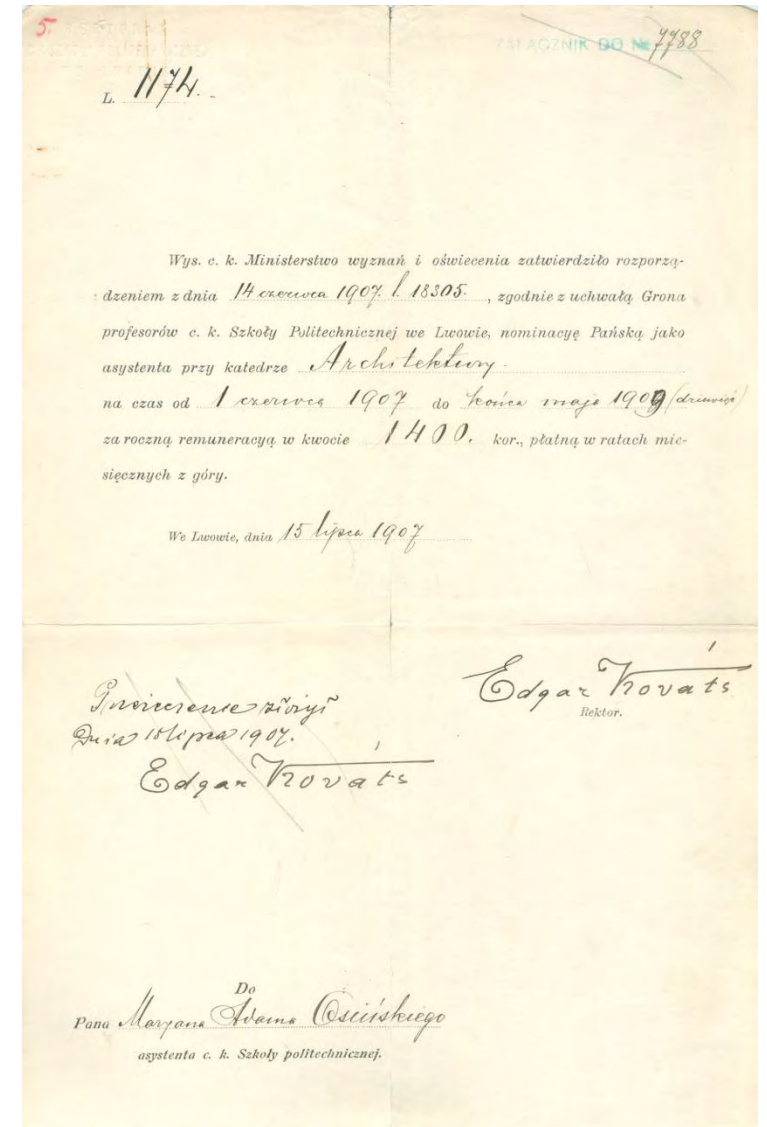 5.
ZAŁĄCZNIK DO № 7788
L. 1174. -
Wys. c. k. Ministerstwo wyznań i oświecenia zatwierdziło rozporzą-
dzeniem z dnia 14 czerwca 1907. l. 18305. , zgodnie z uchwałą Grona
profesorów c. k. Szkoły Politechnicznej we Lwowie, nominacyę Pańską jako
asystenta przy katedrze Architektury.
na czas od 1 czerwca 1907 do końca maja 1909 (dziewięć)
za roczną remuneracyą w kwocie 1400. kor., płatną w ratach mie-
sięcznych z góry.
We Lwowie, dnia 15 lipca 1907
Edgar Kováts
Rektor.
Przyrzeczenie złożył
Dnia 18 lipca 1907.
Edgar Kováts
Do
Pana Maryana Adama Osińskiego
asystenta c. k. Szkoły politechnicznej.